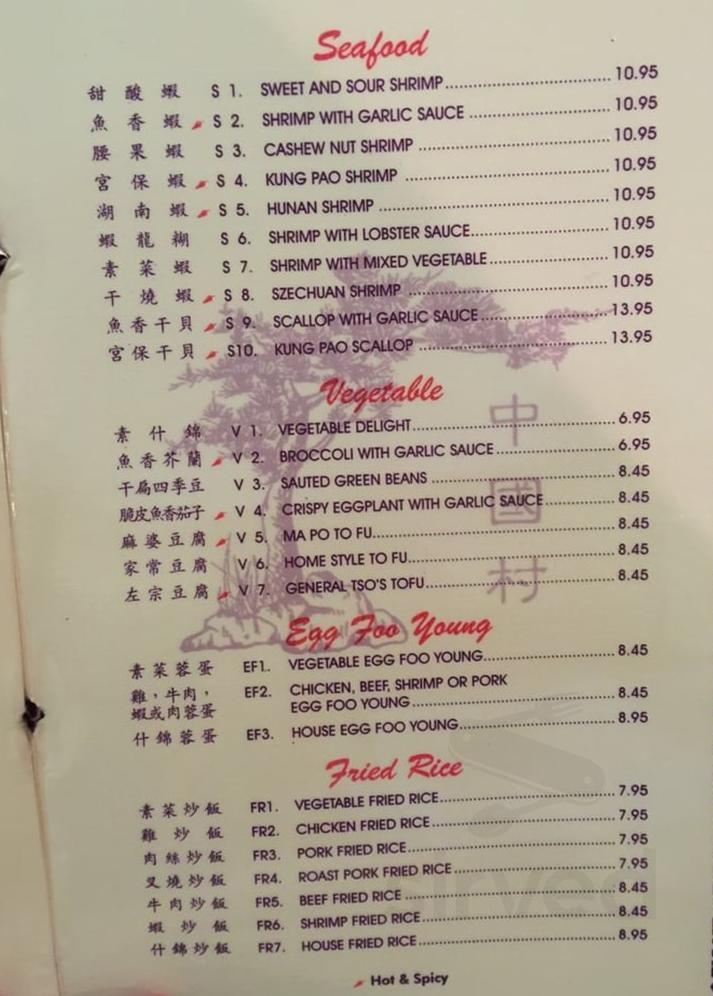 Seafood
甜酸蝦 S 1. SWEET AND SOUR SHRIMP 10.95
魚香蝦 S 2. SHRIMP WITH GARLIC SAUCE 10.95
腰果蝦 S 3. CASHEW NUT SHRIMP 10.95
宮保蝦 S 4. KUNG PAO SHRIMP 10.95
湖南蝦 S 5. HUNAN SHRIMP 10.95
蝦龍糊 S 6. SHRIMP WITH LOBSTER SAUCE 10.95
素菜蝦 S 7. SHRIMP WITH MIXED VEGETABLE 10.95
干燒蝦 S 8. SZECHUAN SHRIMP 10.95
魚香干貝 S 9. SCALLOP WITH GARLIC SAUCE 13.95
宮保干貝 S10. KUNG PAO SCALLOP 13.95
Vegetable
素什錦 V 1. VEGETABLE DELIGHT 6.95
魚香芥蘭 V 2. BROCCOLI WITH GARLIC SAUCE 6.95
干扁四季豆 V 3. SAUTED GREEN BEANS 8.45
脆皮魚香茄子 V 4. CRISPY EGGPLANT WITH GARLIC SAUCE 8.45
麻婆豆腐 V 5. MA PO TO FU 8.45
家常豆腐 V 6. HOME STYLE TO FU 8.45
左宗豆腐 V 7. GENERAL TSO'S TOFU 8.45
中國村
Egg Foo Young
素菜蓉蛋 EF1. VEGETABLE EGG FOO YOUNG 8.45
雞，牛肉， EF2. CHICKEN, BEEF, SHRIMP OR PORK
蝦或肉蓉蛋 EGG FOO YOUNG 8.45
什錦蓉蛋 EF3. HOUSE EGG FOO YOUNG 8.95
Fried Rice
素菜炒飯 FR1. VEGETABLE FRIED RICE 7.95
雞炒飯 FR2. CHICKEN FRIED RICE 7.95
肉絲炒飯 FR3. PORK FRIED RICE 7.95
叉燒炒飯 FR4. ROAST PORK FRIED RICE 7.95
牛肉炒飯 FR5. BEEF FRIED RICE 8.45
蝦炒飯 FR6. SHRIMP FRIED RICE 8.45
什錦炒飯 FR7. HOUSE FRIED RICE 8.95
sirved
Hot & Spicy